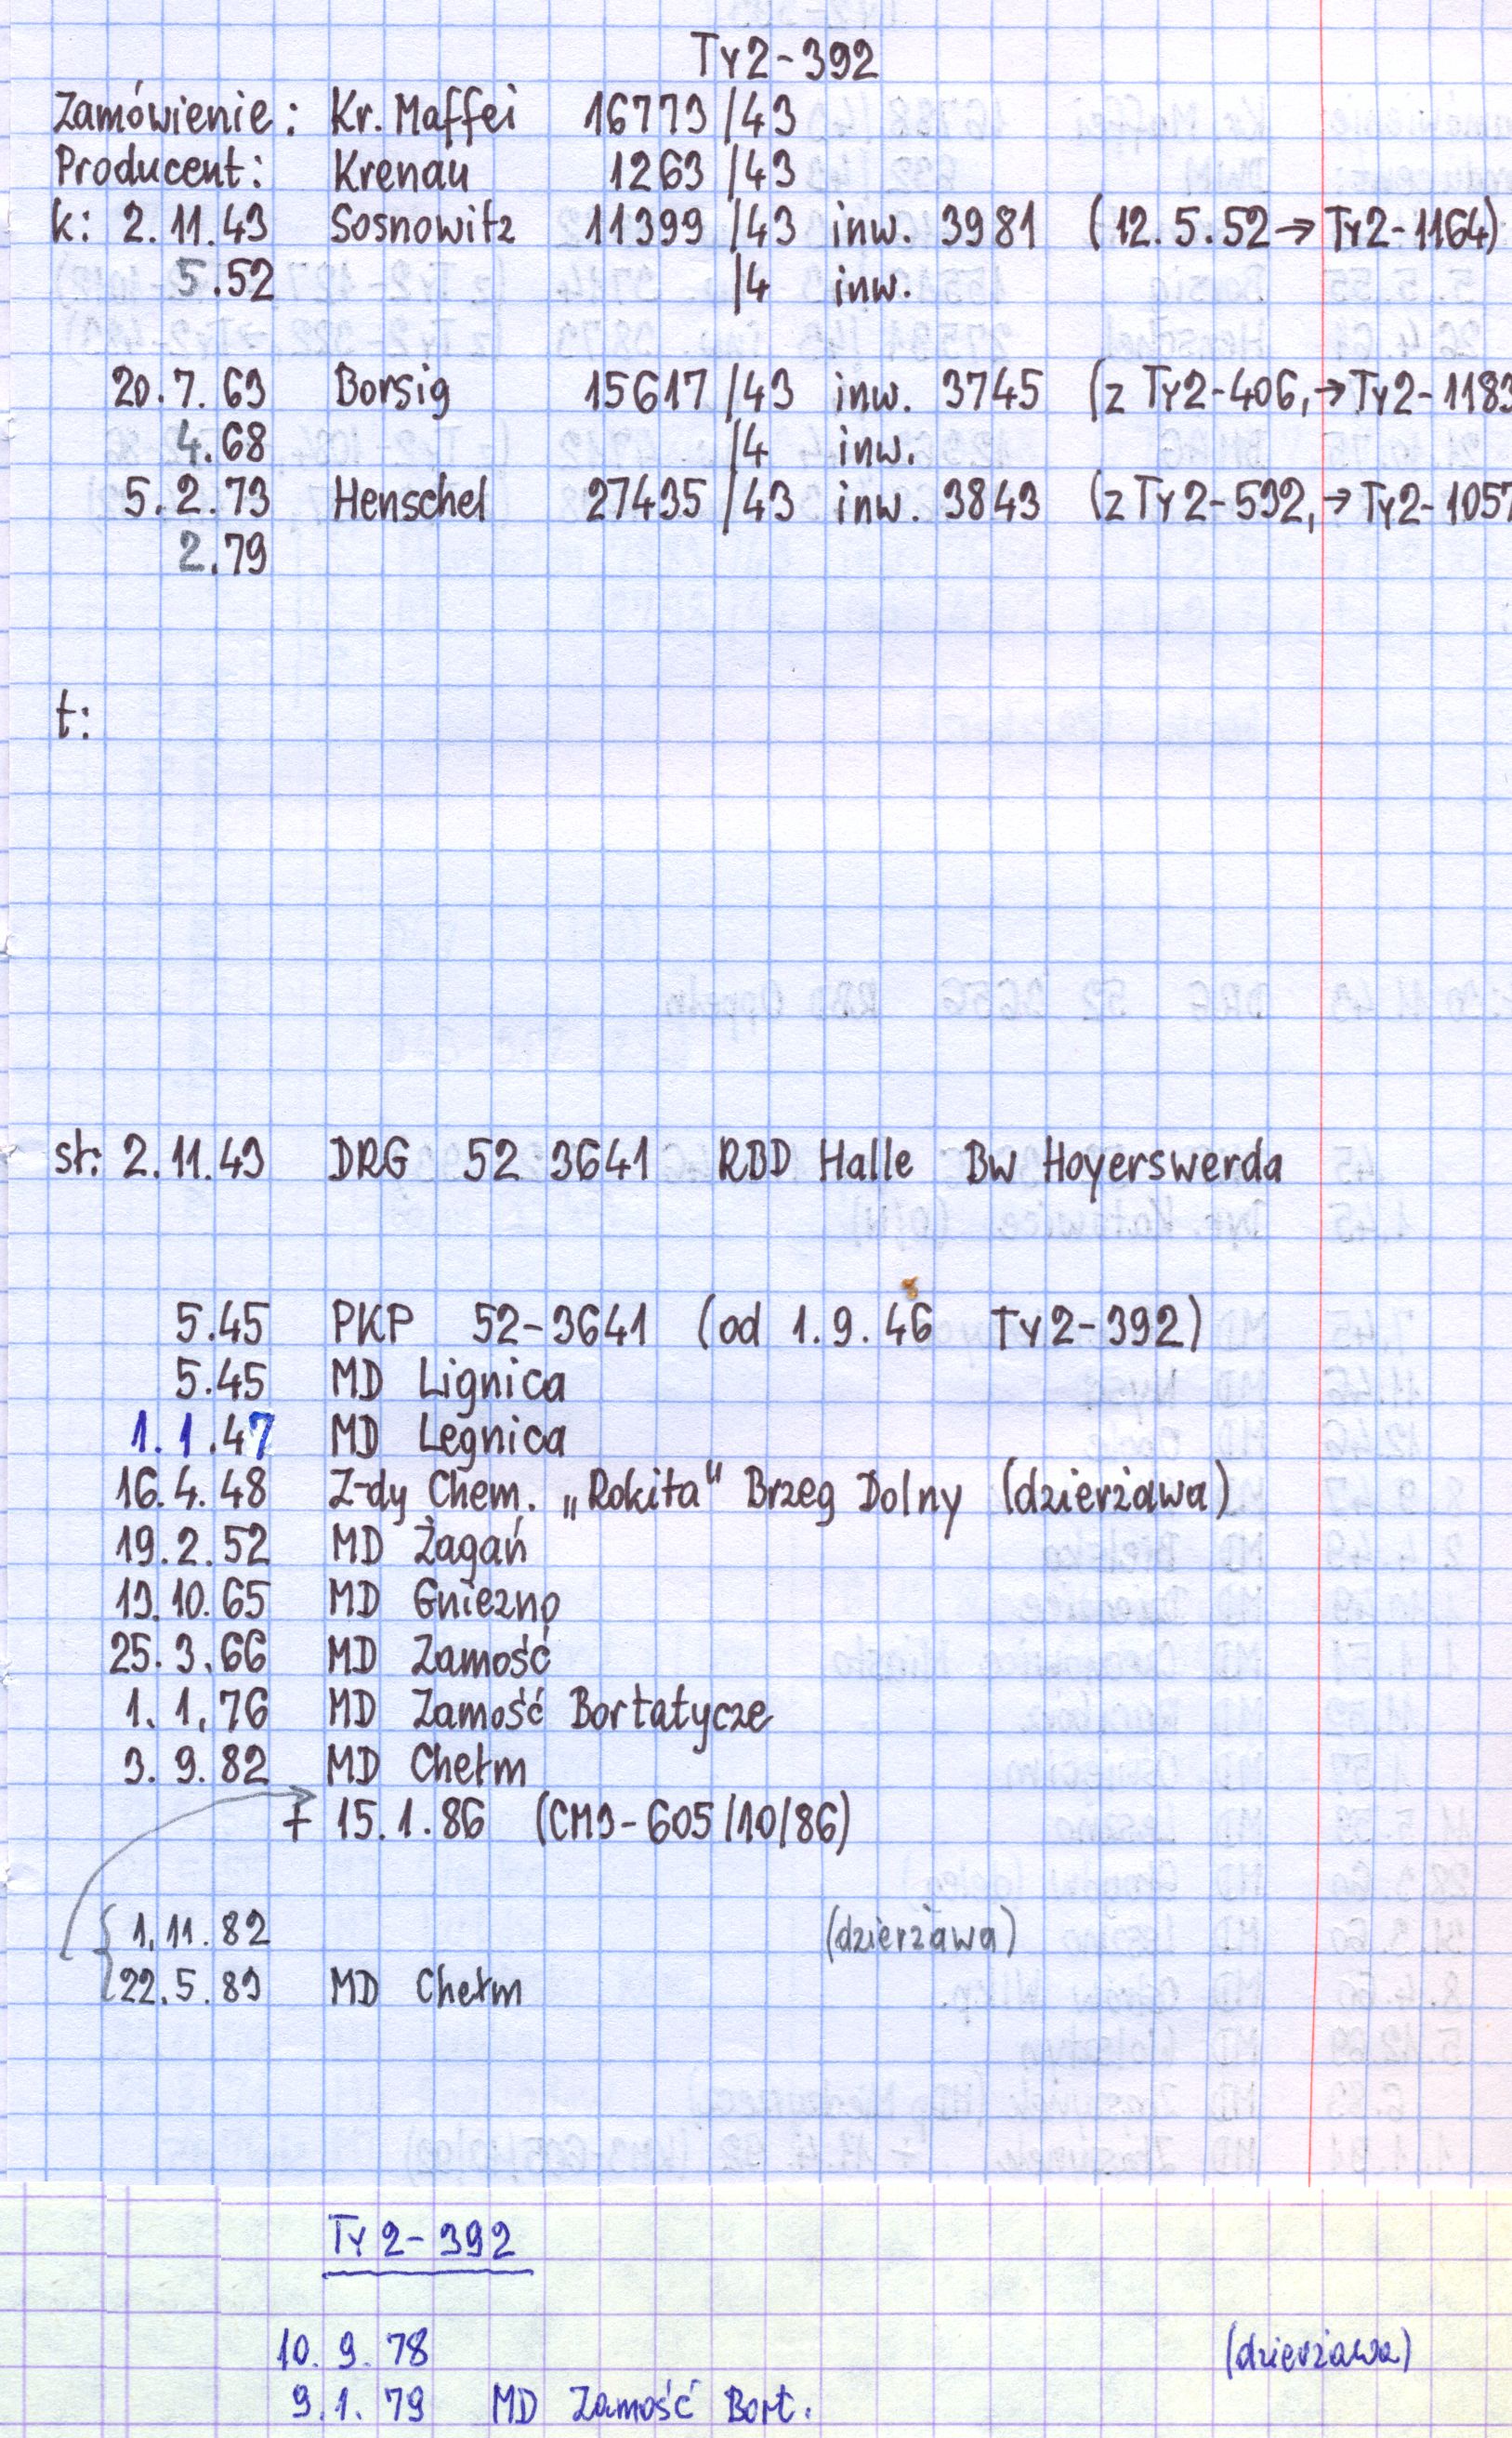 Ty2-392
Zamówienie: Kr. Maffei 16773/43
Producent: Krenau 1263/43
k: 2.11.43 Sosnowitz 11399/43 inw. 3981 (12.5.52→Ty2-1164)
5.52 /4 inw.
20.7.63 Borsig 15617/43 inw. 3745 (z Ty2-406,→Ty2-1183
4.68 /4 inw.
5.2.73 Henschel 27435/43 inw. 3843 (z Ty2-532,→Ty2-1057
2.79
t:
st: 2.11.43 DRG 52 3641 RBD Halle Bw Hoyerswerda
5.45 PKP 52-3641 (od 1.9.46 Ty2-392)
5.45 MD Lignica
1.1.47 MD Legnica
16.4.48 Z-dy Chem. „Rokita" Brzeg Dolny (dzierżawa)
19.2.52 MD Żagań
19.10.65 MD Gniezno
25.3.66 MD Zamość
1.1.76 MD Zamość Bortatycze
3.9.82 MD Chełm
+ 15.1.86 (CM3-605/10/86)
1.11.82 (dzierżawa)
22.5.83 MD Chełm
Ty2-392
10.9.78 (dzierżawa)
9.1.79 MD Zamość Bort.